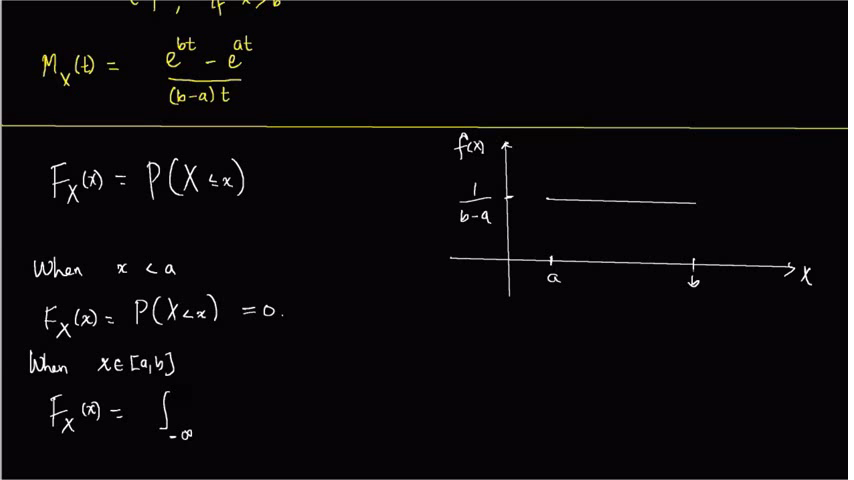 1, if x > b
M_X(t) = (e^{bt} - e^{at}) / ((b-a)t)
F_X(x) = P(X ≤ x)
When x < a
F_X(x) = P(X < x) = 0.
When x ∈ [a,b]
F_X(x) = ∫_{-∞}
f(x)
1/(b-a)
a b x